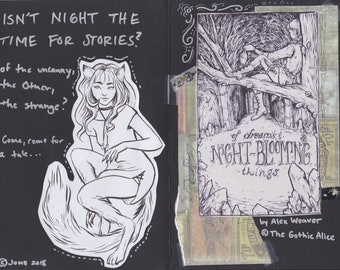 ISN'T NIGHT THE
TIME FOR STORIES?
of the uncanny,
the Other,
the strange?
Come, come for
a tale...
©June 2018
of dreams &
NIGHT-BLOOMING
things
by Alex Weaver
© The Gothic Alice